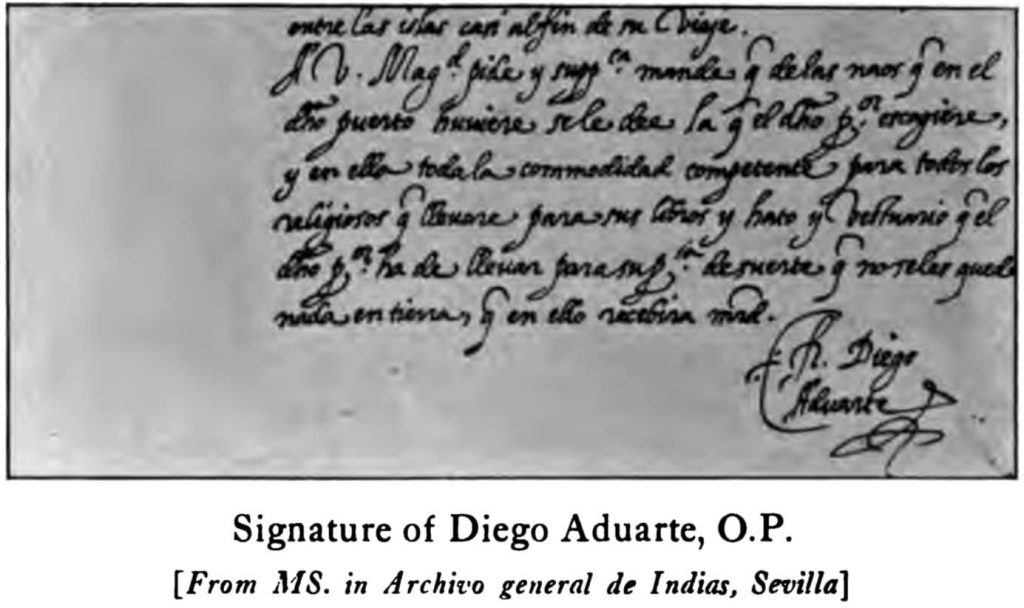 entre las islas casi al fin de su viaje.
A V. Mag.d pide y supp.ca mande q̃ de las naos q̃ en el
dho puerto huuiere se le dee la q̃ el dho p.or escogiere,
y en ella toda la commodidad competente para todos los
religiosos q̃ lleuare para sus libros y hato y vestuario q̃ el
dho p.or ha de lleuar para su p. de suerte q̃ no se les quede
nada en tierra, q̃ en ello recebira mrd.
Fr. Diego
Aduarte
Signature of Diego Aduarte, O.P.
[From MS. in Archivo general de Indias, Sevilla]